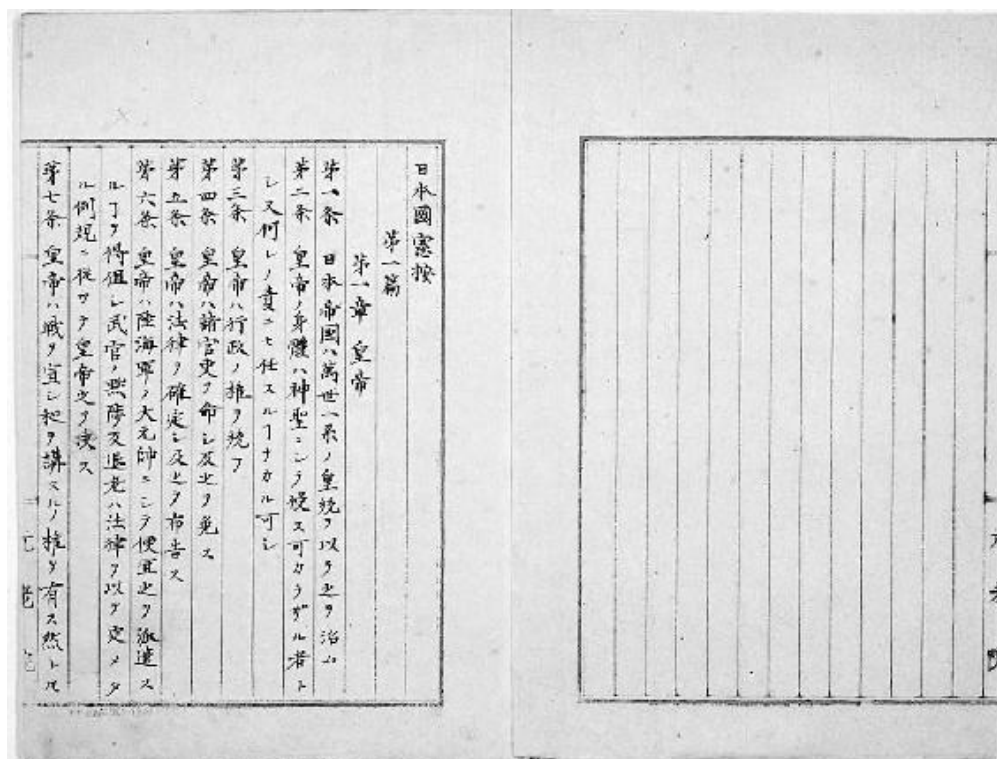 日本國憲按
第一篇
第一章 皇帝
第一条 日本帝國ハ萬世一系ノ皇統ヲ以テ之ヲ治ム
第二条 皇帝ノ身體ハ神聖ニシテ侵ス可カラザル者ト
シ又何レノ責ニモ任スルヿナカル可シ
第三条 皇帝ハ行政ノ権ヲ統フ
第四条 皇帝ハ諸官吏ヲ命シ及之ヲ免ス
第五条 皇帝ハ法律ヲ確定シ及之ヲ布告ス
第六条 皇帝ハ陸海軍ノ大元帥ニシテ便宜之ヲ派遣ス
ルヿヲ得但シ武官ノ黜陟及退老ハ法律ヲ以テ定メタ
ル例規ニ従ツテ皇帝之ヲ決ス
第七条 皇帝ハ戦ヲ宣シ和ヲ講スルノ権ヲ有ス然レ𪜈
元老